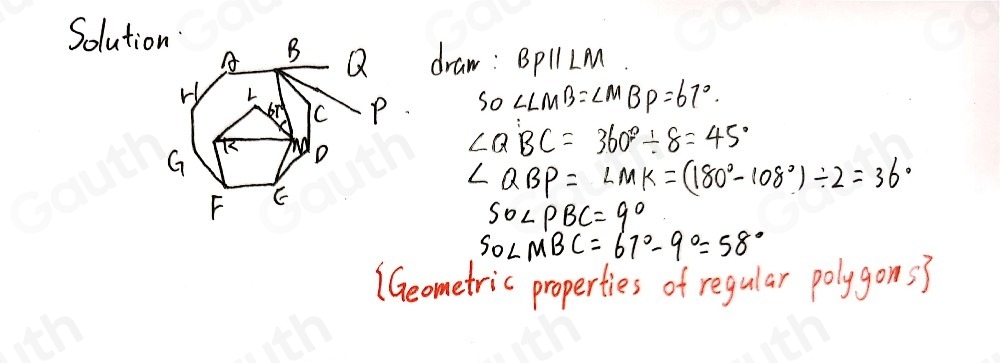 Solution.
A B Q
H L 67° C P.
G K M D
F E
draw: BP∥LM.
So ∠LMB=∠MBP=67°.
∠QBC= 360°÷8=45°
∠QBP= LMK=(180°-108°)÷2=36°
So∠PBC=9°
So∠MBC=67°-9°=58°
{Geometric properties of regular polygons}